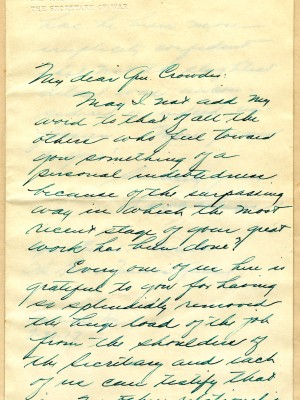 THE SECRETARY OF WAR
My dear Gen. Crowder:
May I not add my
word to that of all the
others who feel toward
you something of a
personal indebtedness
because of the surpassing
way in which the most
recent stage of your great
work has been done?
Every one of us here is
grateful to you for having
so splendidly removed
the huge load of the job
from the shoulders of
the Secretary and each
of us can testify that